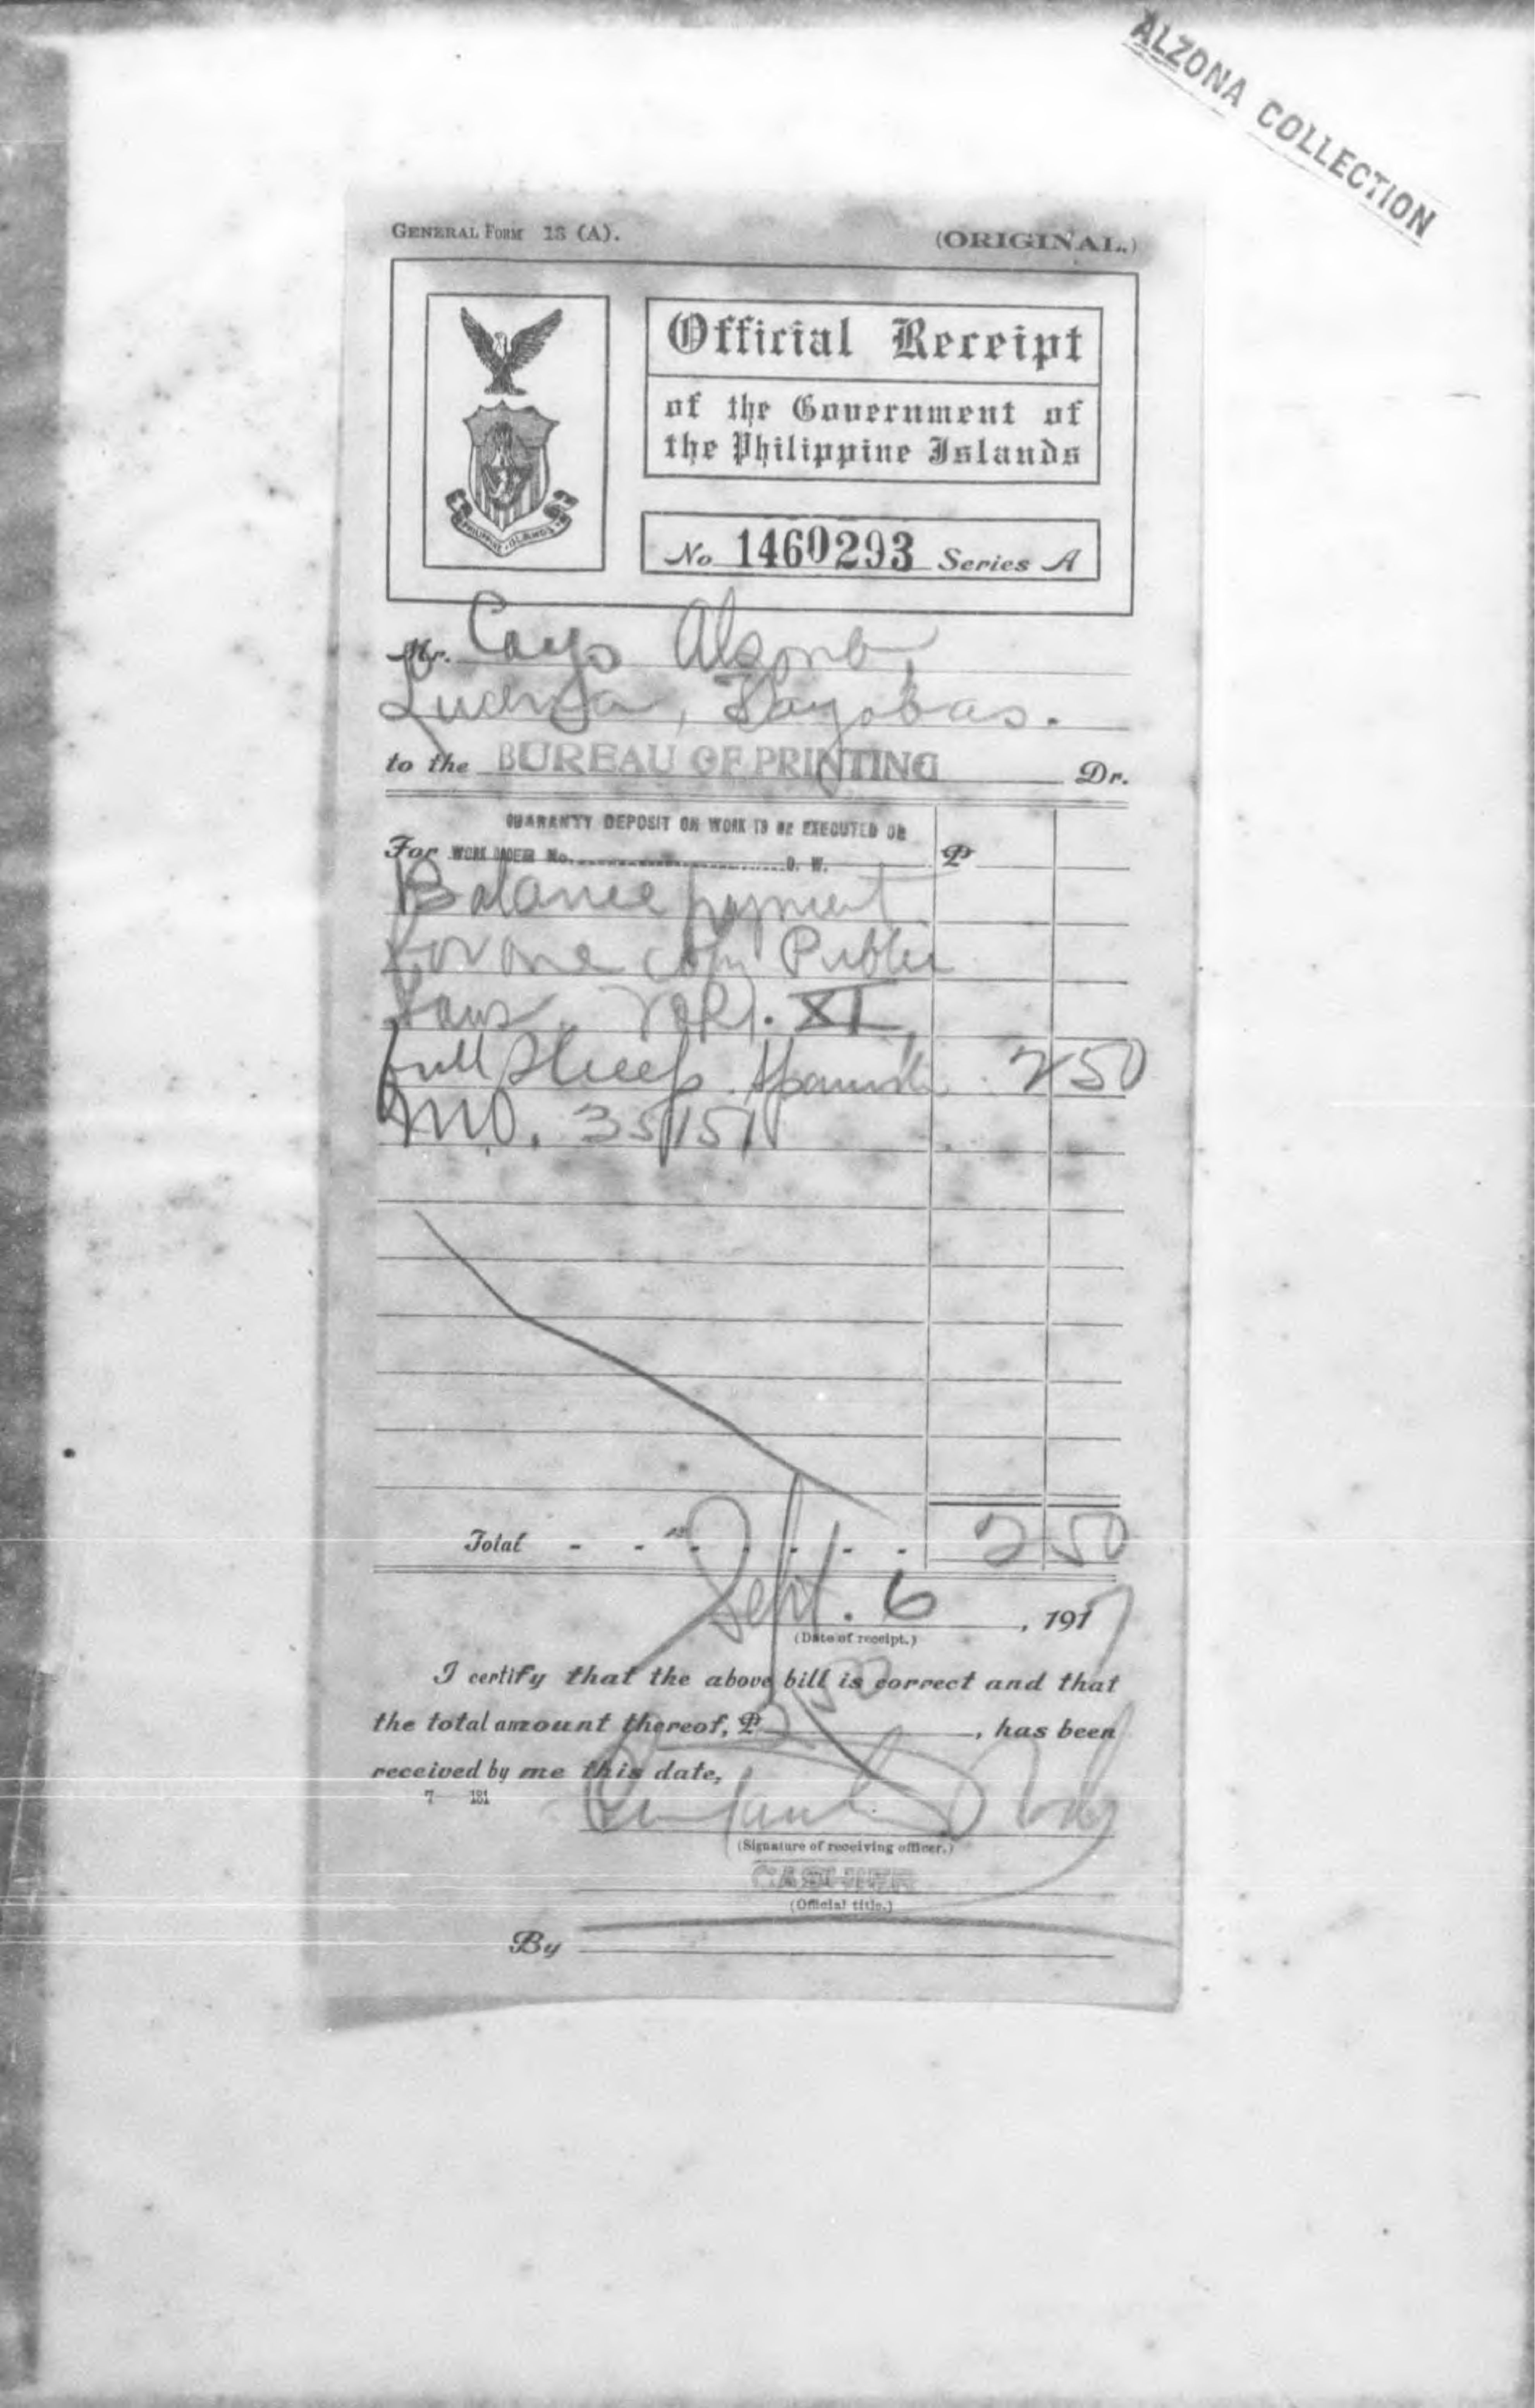 ALZONA COLLECTION
GENERAL FORM 13 (A).
(ORIGINAL.)
Official Receipt
of the Government of
the Philippine Islands
PHILIPPINE ISLANDS
No 1460293 Series A
Mr. Cayo Alzona,
Lucena, Tayabas.
to the BUREAU OF PRINTING Dr.
GUARANTY DEPOSIT ON WORK TO BE EXECUTED OR
For WORK ORDER No. O. W. ₱
Balance payment
for one copy Public
Laws, Vol. XI,
full sheep Spanish 2 50
M.O. 35151
Total - - - - - - - 2 50
Sept. 6, 1917
(Date of receipt.)
I certify that the above bill is correct and that
the total amount thereof, ₱ 2.50, has been
received by me this date,
7 181
(Signature of receiving officer.)
CASHIER
(Official title.)
By